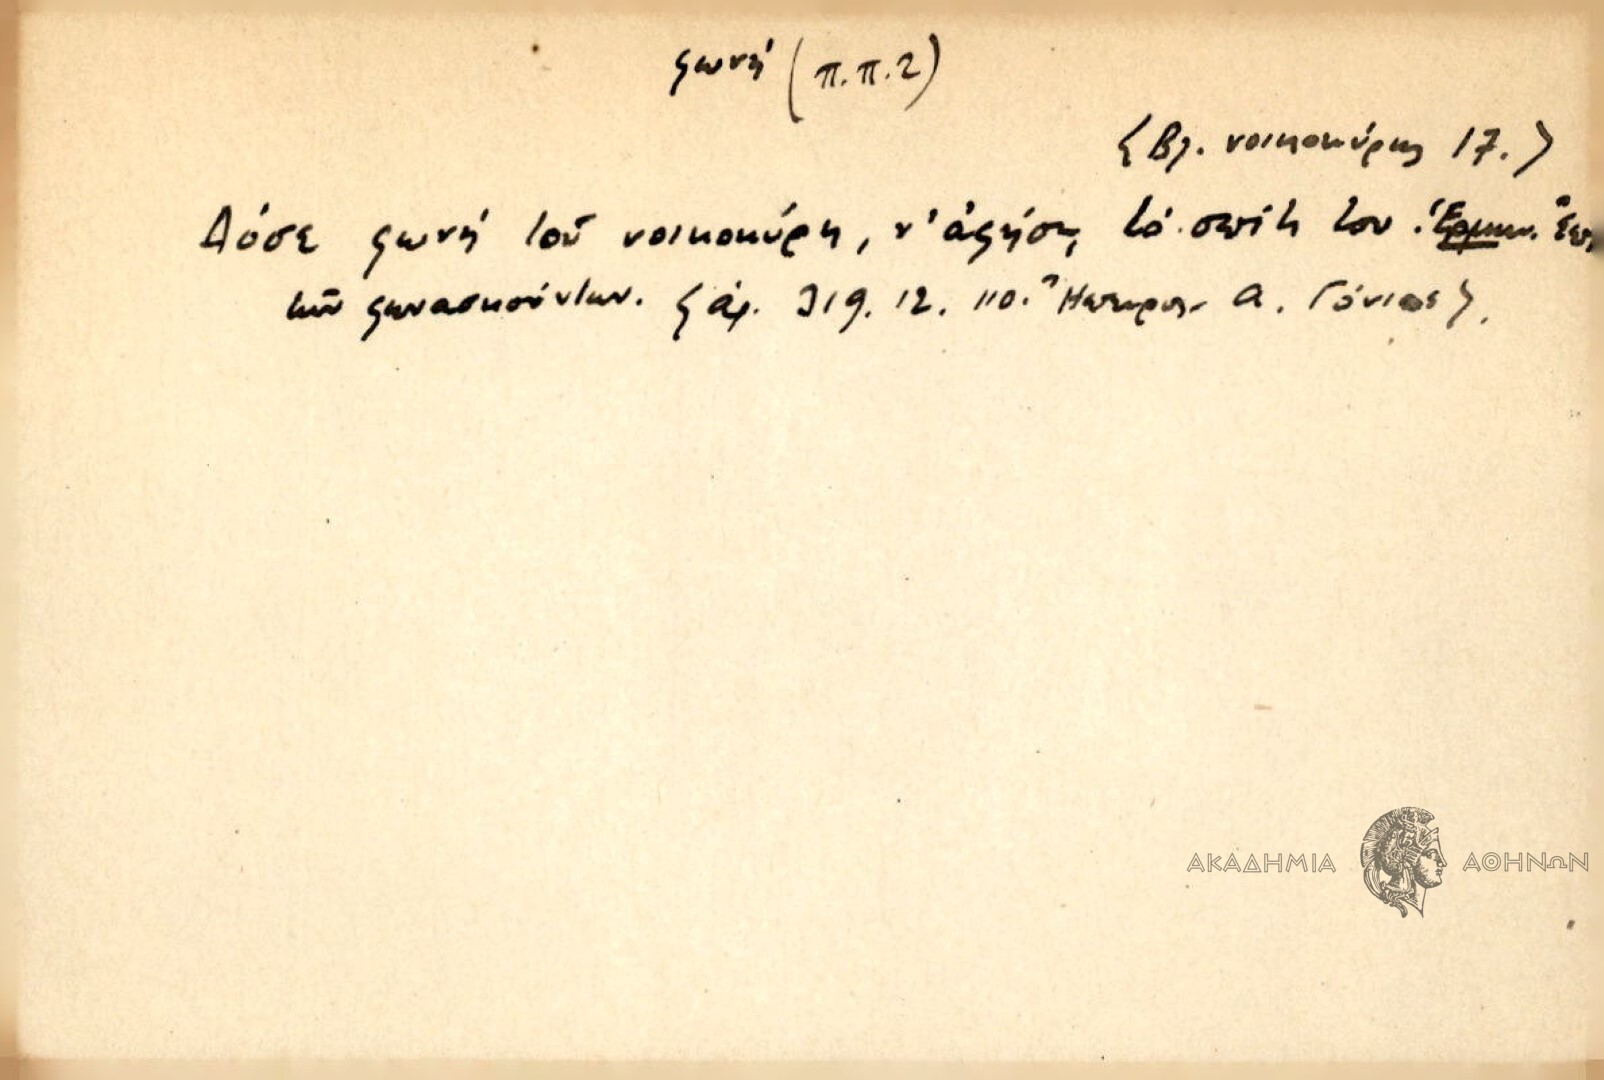 φωνή (π.π.2)
{Βλ. νοικοκύρης 17.}
Δόσε φωνή τοῦ νοικοκύρη, ν' ἀφήσῃ τό σπίτι του. Ἑρμην. Ἐπὶ
τῶν φωνασκούντων. {ἀρ. 319. 12. 110. Ἤπειρος. Α. Γόνιος}.
ΑΚΑΔΗΜΙΑ ΑΘΗΝΩΝ